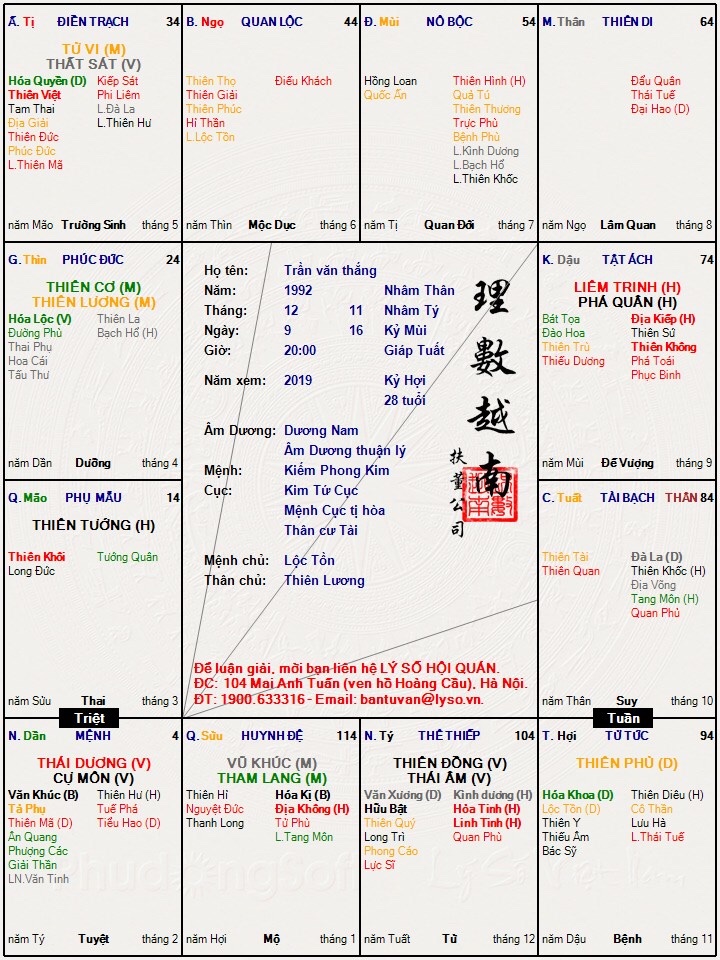 Ấ. Tị ĐIỀN TRẠCH 34
TỬ VI (M)
THẤT SÁT (V)
Hóa Quyền (D) Kiếp Sát
Thiên Việt Phi Liêm
Tam Thai L.Đà La
Địa Giải L.Thiên Hư
Thiên Đức
Phúc Đức
L.Thiên Mã
năm Mão Trường Sinh tháng 5
B. Ngọ QUAN LỘC 44
Thiên Thọ Điếu Khách
Thiên Giải
Thiên Phúc
Hỉ Thần
L.Lộc Tồn
năm Thìn Mộc Dục tháng 6
Đ. Mùi NÔ BỘC 54
Hồng Loan Thiên Hình (H)
Quốc Ấn Quả Tú
Thiên Thương
Trực Phù
Bệnh Phù
L.Kình Dương
L.Bạch Hổ
L.Thiên Khốc
năm Tị Quan Đới tháng 7
M. Thân THIÊN DI 64
Đẩu Quân
Thái Tuế
Đại Hao (D)
năm Ngọ Lâm Quan tháng 8
G. Thìn PHÚC ĐỨC 24
THIÊN CƠ (M)
THIÊN LƯƠNG (M)
Hóa Lộc (V) Thiên La
Đường Phù Bạch Hổ (H)
Thai Phụ
Hoa Cái
Tấu Thư
năm Dần Dưỡng tháng 4
Họ tên: Trần văn thắng
Năm: 1992 Nhâm Thân
Tháng: 12 11 Nhâm Tý
Ngày: 9 16 Kỷ Mùi
Giờ: 20:00 Giáp Tuất
Năm xem: 2019 Kỷ Hợi
28 tuổi
Âm Dương: Dương Nam
Âm Dương thuận lý
Mệnh: Kiếm Phong Kim
Cục: Kim Tứ Cục
Mệnh Cục tị hòa
Thân cư Tài
Mệnh chủ: Lộc Tồn
Thân chủ: Thiên Lương
理數越南
扶董公司
Để luận giải, mời bạn liên hệ LÝ SỐ HỘI QUÁN.
ĐC: 104 Mai Anh Tuấn (ven hồ Hoàng Cầu), Hà Nội.
ĐT: 1900.633316 - Email: bantuvan@lyso.vn.
K. Dậu TẬT ÁCH 74
LIÊM TRINH (H)
PHÁ QUÂN (H)
Bát Tọa Địa Kiếp (H)
Đào Hoa Thiên Sứ
Thiên Trù Thiên Không
Thiếu Dương Phá Toái
Phục Binh
năm Mùi Đế Vượng tháng 9
Q. Mão PHỤ MẪU 14
THIÊN TƯỚNG (H)
Thiên Khôi Tướng Quân
Long Đức
năm Sửu Thai tháng 3
C. Tuất TÀI BẠCH THÂN 84
Thiên Tài Đà La (D)
Thiên Quan Thiên Khốc (H)
Địa Võng
Tang Môn (H)
Quan Phủ
năm Thân Suy tháng 10
Triệt
Tuần
N. Dần MỆNH 4
THÁI DƯƠNG (V)
CỰ MÔN (V)
Văn Khúc (B) Thiên Hư (H)
Tả Phụ Tuế Phá
Thiên Mã (D) Tiểu Hao (D)
Ân Quang
Phượng Các
Giải Thần
LN.Văn Tinh
năm Tý Tuyệt tháng 2
Q. Sửu HUYNH ĐỆ 114
VŨ KHÚC (M)
THAM LANG (M)
Thiên Hỉ Hóa Kị (B)
Nguyệt Đức Địa Không (H)
Thanh Long Tử Phù
L.Tang Môn
năm Hợi Mộ tháng 1
N. Tý THÊ THIẾP 104
THIÊN ĐỒNG (V)
THÁI ÂM (V)
Văn Xương (D) Kình dương (H)
Hữu Bật Hỏa Tinh (H)
Thiên Quý Linh Tinh (H)
Long Trì Quan Phù
Phong Cáo
Lực Sĩ
năm Tuất Tử tháng 12
T. Hợi TỬ TỨC 94
THIÊN PHỦ (D)
Hóa Khoa (D) Thiên Diêu (H)
Lộc Tồn (D) Cô Thần
Thiên Y Lưu Hà
Thiếu Âm L.Thái Tuế
Bác Sỹ
năm Dậu Bệnh tháng 11